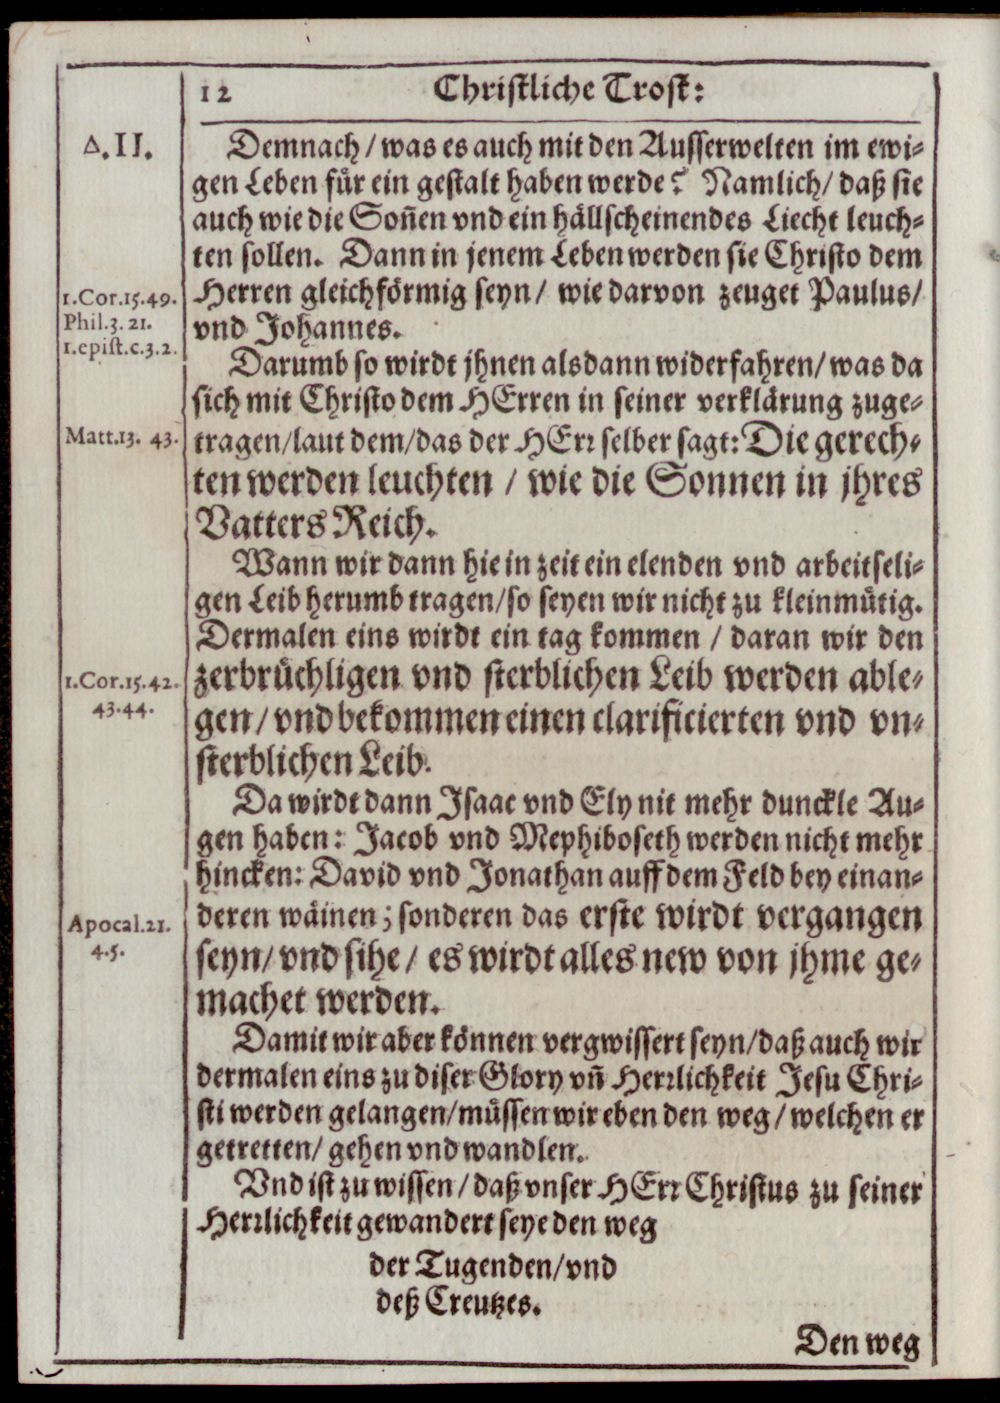 12 Christliche Trost:
△.II.
Demnach / was es auch mit den Ausserwelten im ewi-
gen Leben für ein gestalt haben werde? Namlich / daß sie
auch wie die Soñen vnd ein hällscheinendes Liecht leuch-
ten sollen. Dann in jenem Leben werden sie Christo dem
1.Cor.15.49.
Herren gleichförmig seyn / wie darvon zeuget Paulus /
Phil.3.21.
vnd Johannes.
1.epist.c.3.2.
Darumb so wirdt jhnen alsdann widerfahren / was da
sich mit Christo dem HErren in seiner verklärung zuge-
Matt.13. 43.
tragen / laut dem / das der HErr selber sagt: Die gerech-
ten werden leuchten / wie die Sonnen in jhres
Vatters Reich.
Wann wir dann hie in zeit ein elenden vnd arbeitseli-
gen Leib herumb tragen / so seyen wir nicht zu kleinmütig.
Dermalen eins wirdt ein tag kommen / daran wir den
1.Cor.15.42.
zerbrüchligen vnd sterblichen Leib werden able-
43.44.
gen / vnd bekommen einen clarificierten vnd vn-
sterblichen Leib.
Da wirdt dann Isaac vnd Ely nit mehr dunckle Au-
gen haben: Jacob vnd Mephiboseth werden nicht mehr
hincken: David vnd Jonathan auff dem Feld bey einan-
Apocal.21.
deren wäinen; sonderen das erste wirdt vergangen
4.5.
seyn / vnd sihe / es wirdt alles new von jhme ge-
machet werden.
Damit wir aber können vergwissert seyn / daß auch wir
dermalen eins zu diser Glory vñ Herrlichkeit Jesu Chri-
sti werden gelangen / müssen wir eben den weg / welchen er
getretten / gehen vnd wandlen.
Vnd ist zu wissen / daß vnser HErr Christus zu seiner
Herrlichkeit gewandert seye den weg
der Tugenden / vnd
deß Creutzes.
Den weg